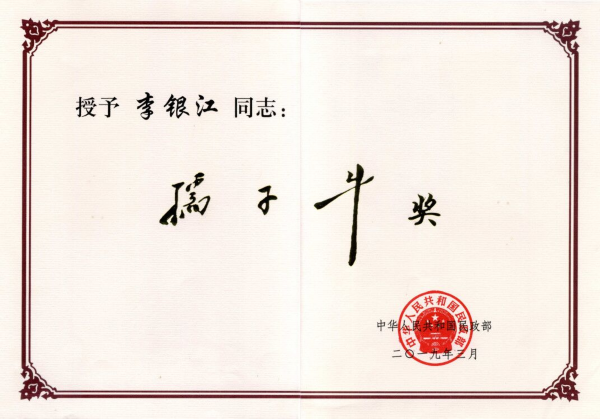 授予 李银江 同志：
孺子牛奖
中华人民共和国民政部
二〇一九年三月
中华人民共和国民政部